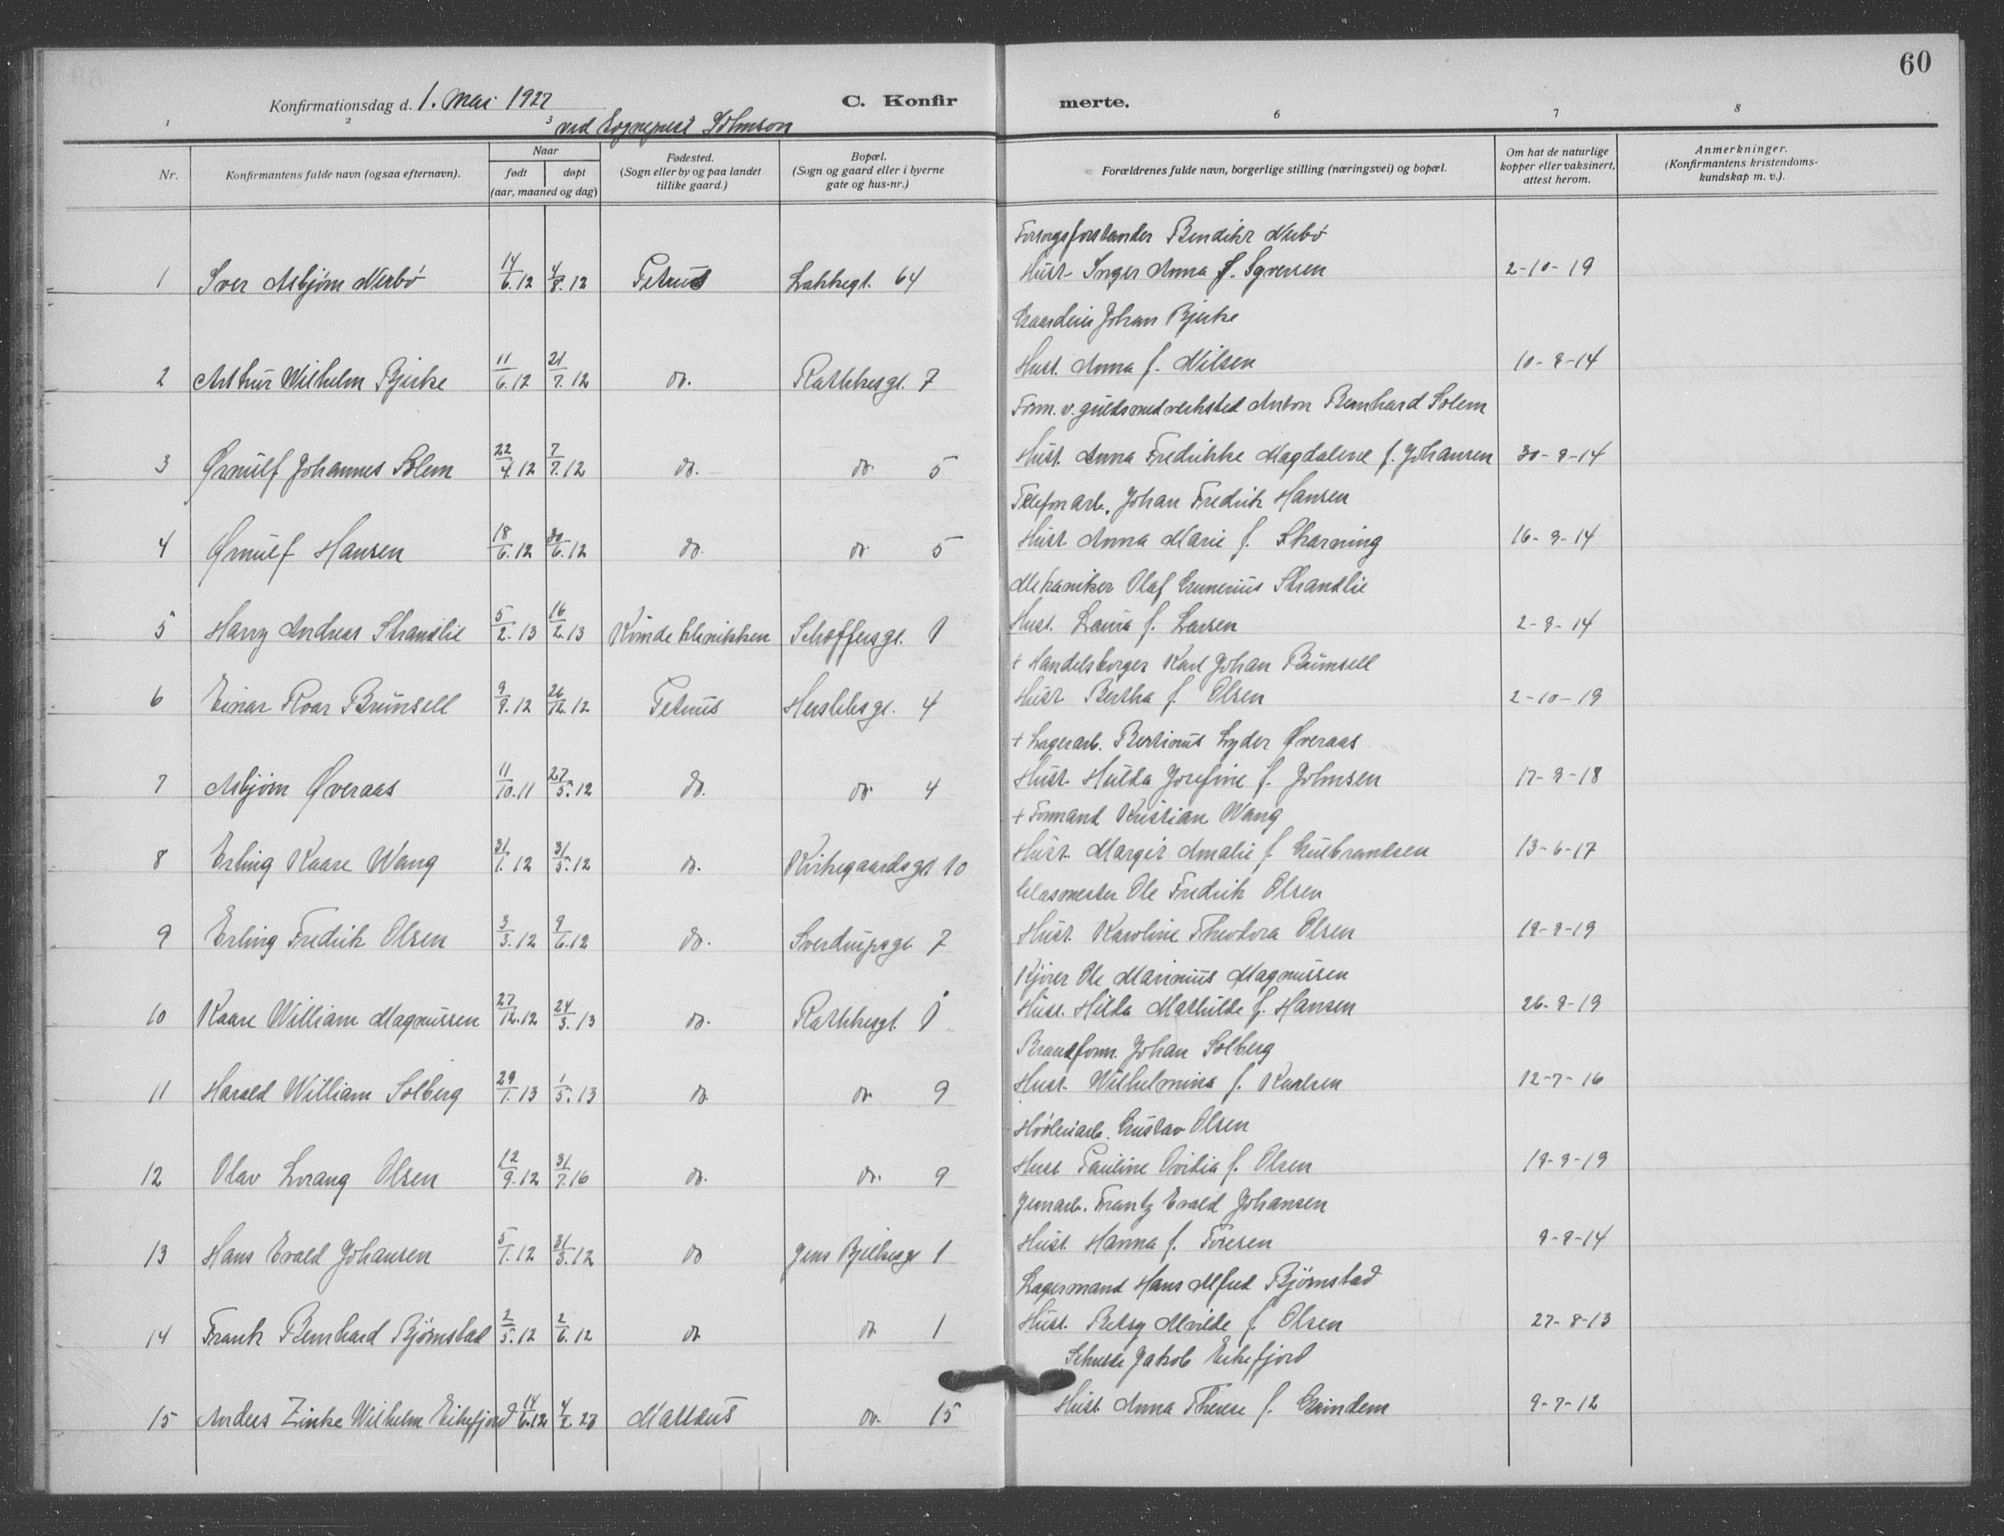 60
Konfirmationsdag d. 1. Mai 1927 C. Konfir merte.
ved Sogneprest Johnson
1 2 3 6 7 8
Nr. Konfirmantens fulde navn (ogsaa efternavn). Naar født døpt (aar, maaned og dag) Fødested. (Sogn eller by og paa landet tillike gaard.) Bopæl. (Sogn og gaard eller i byerne gate og hus-nr.) Forældrenes fulde navn, borgerlige stilling (næringsvei) og bopæl. Om hat de naturlige kopper eller vaksinert, attest herom. Anmerkninger. (Konfirmantens kristendoms-kundskap m. v.).
Forsorgsforstander Bendikt Nerbø
1 Iver Asbjørn Nerbø 14/6.12 4/8.12 Petrus Lakkegt. 64 Hust. Inger Anna f. Syversen 2-10-19
Gaardeier Johan Bjerke
2 Arthur Wilhelm Bjerke 11/6.12 21/7.12 do. Rathkesgt. 7 Hust. Anna f. Nilsen 10-9-14
Form. v. guldsmedverksted Anton Bernhard Solem
3 Ørnulf Johannes Solem 22/4.12 7/7.12 do. do. 5 Hust. Anna Fredrikke Magdalene f. Johansen 30-9-14
Telefonarb. Johan Fredrik Hansen
4 Ørnulf Hansen 18/6.12 30/6.12 do. do 5 Hust. Anna Marie f. Skarning 16-9-14
Mekaniker Olaf Gunerius Strandlie
5 Harry Andreas Strandlie 5/2.13 16/2.13 Kvindeklinikken Schoffersgt. 1 Hust. Laura f. Larsen 2-9-14
+ Handelsborger Karl Johan Brunsell
6 Einar Roar Brunsell 9/9.12 26/12.12 Petrus Herslebsgt. 4 Hust. Bertha f. Olsen 2-10-19
+ Lagerarb. Bertinus Lyder Øveraas
7 Asbjørn Øveraas 11/10.11 27/5.12 do. do 4 Hust. Hulda Josefine f. Johnsen 17-9-18
+ Formand Kristian Wang
8 Erling Kaare Wang 31/1.12 31/5.12 do. Kirkegaardsgt 10 Hust. Margit Amalie f. Gulbrandsen 13-6-17
Glasmester Ole Fredrik Olsen
9 Erling Fredrik Olsen 3/3.12 9/6.12 do. Sverdrupsgt 7 Hust. Karoline Theodora Olsen 19-9-19
Kjører Ole Marinius Magnussen
10 Kaare William Magnussen 27/12.12 24/3.13 do. Rathkesgt. 1 Hust. Hilda Mathilde f. Hansen 26-9-19
Brandform. Johan Solberg
11 Harald William Solberg 29/1.13 1/5.13 do. do 9 Hust. Wilhelmina f. Karlsen 12-7-16
Høvleriarb. Gustav Olsen
12 Olav Lorang Olsen 12/9.12 31/7.16 do. do. 9 Hust Pauline Ovidia f. Olsen 19-9-19
Jernarb. Frantz Evald Johansen
13 Hans Evald Johansen 5/1.12 31/3.12 do Jens Bjelkesgt 1 Hust. Hanna f. Foresen 9-9-14
Lagermand Hans Alfred Bjørnstad
14 Frank Bernhard Bjørnstad 2/5.12 2/6.12 do do 1 Hust. Betsy Alvilde f. Olsen 27-8-13
Jakob Eikefjord
15 Anders Zinke Wilhelm Eikefjord 14/6.12 4/2.27 Mattæus do. 15 Hust. Anna Therese f. Grindem 9-7-12